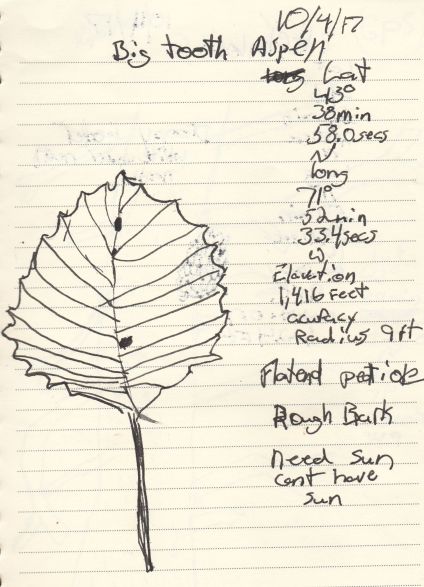 10/4/17
Big tooth Aspen
Lat
43°
38min
58.0secs
N
long
71°
52min
33.4secs
W
Elavation
1,416 feet
acuracy
Radius 9ft
petiole
Rough Bark
need sun
cent have
sun